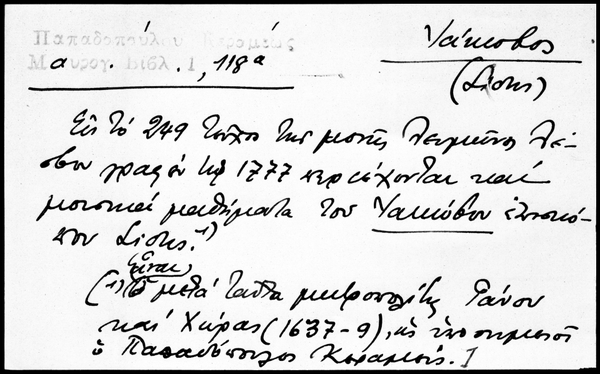 Παπαδοπούλου Κεραμέως
Μαυρογ. Βιβλ. 1, 118α
Ἰάκωβος
(Σίδης)
Εἰς τό 249 τεῦχος τῆς μονῆς Λειμῶνος Λέ-
σβου γραφέν τῷ 1777 περιέχονται καί
μουσικαί μαθήματα τοῦ Ἰακώβου ἐπισκό-
που Σίδης.¹)
(¹) Εἶναι ὁ μετά ταῦτα μητροπολίτης Γάνου
καί Χώρας (1637-9), ὡς ὑποσημειοῖ
ὁ Παπαδόπουλος Κεραμεύς.]